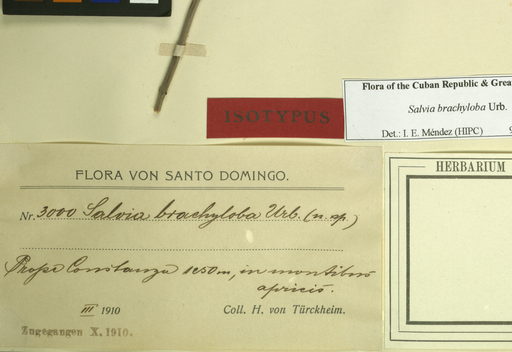 ISOTYPUS
Flora of the Cuban Republic & Grea
Salvia brachyloba Urb.
Det.: I. E. Méndez (HIPC)
FLORA VON SANTO DOMINGO.
Nr. 3000 Salvia brachyloba Urb. (n. sp.)
Prope Constanza 1250 m, in montibus
apricis.
III 1910
Coll. H. von Türckheim.
Zugegangen X. 1910.
HERBARIUM